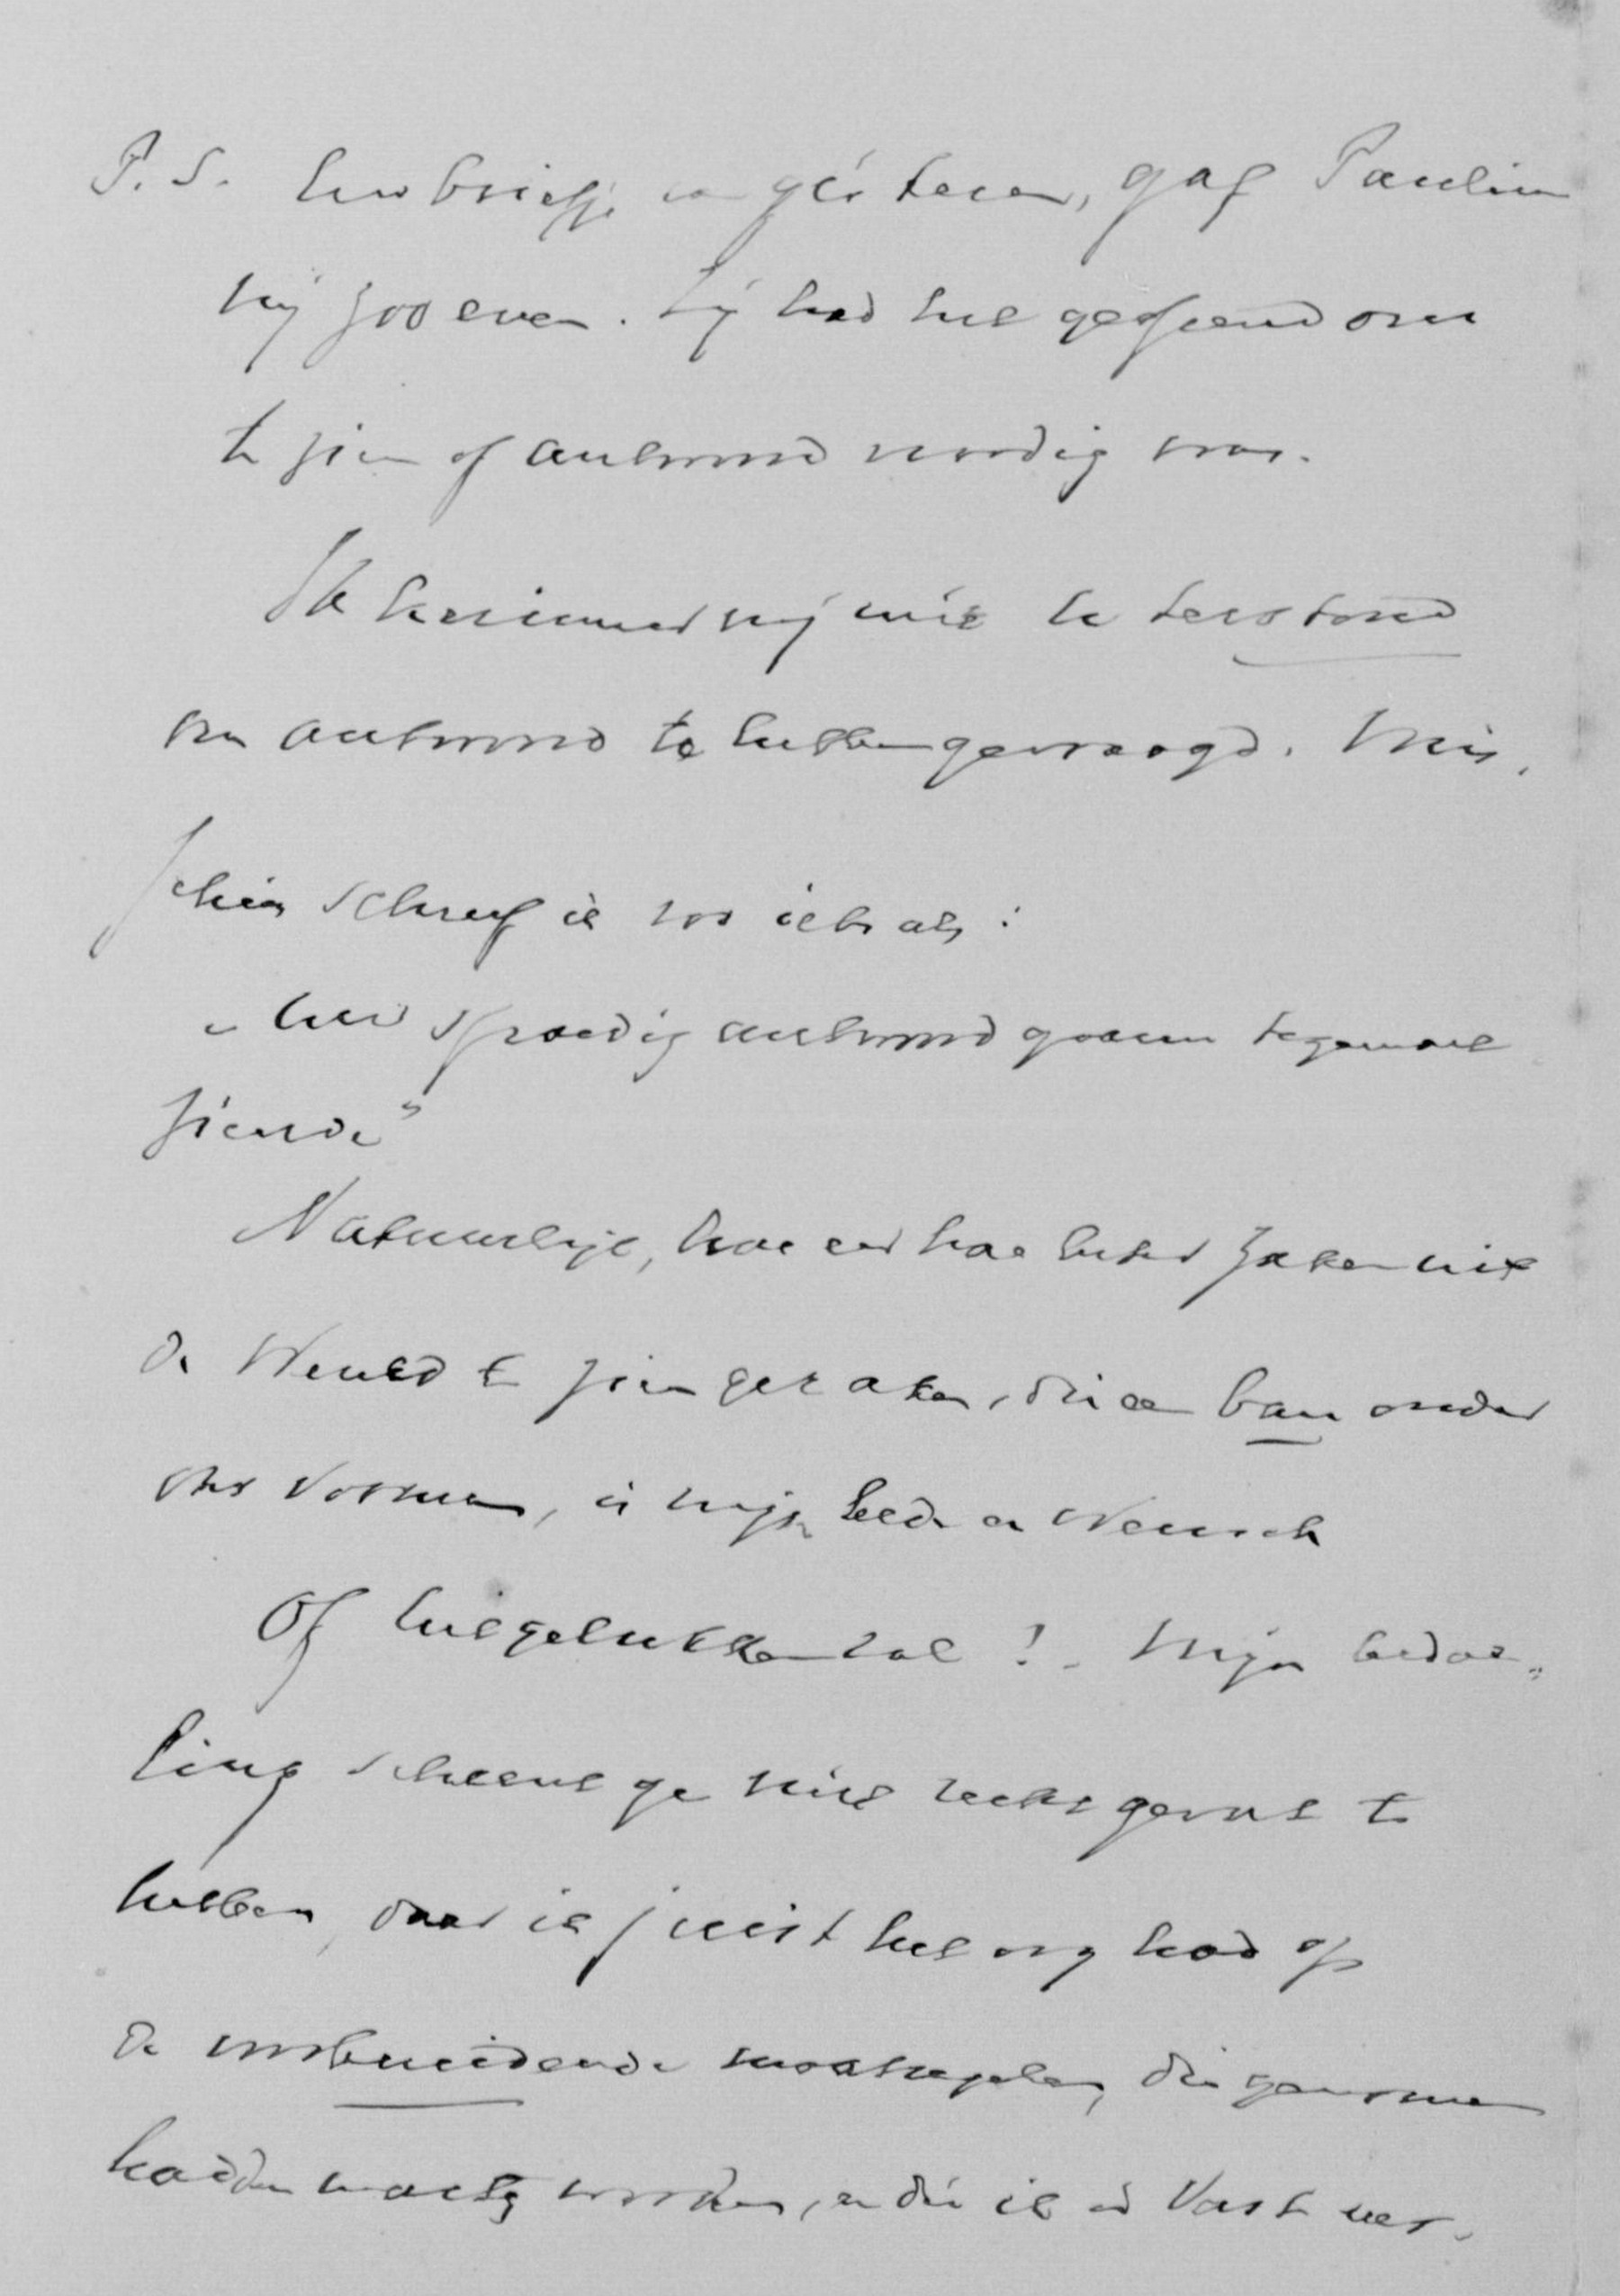 P.S. Uw briefje van gisteren, gaf Pauline
mij zoo even. Zij had het geopend om
te zien of antwoord noodig was.
Ik herinner mij niet te terstond
om antwoord te hebben gevraagd. Mis-
schien schreef ik zoo iets als:
"Uw spoedig antwoord gaarne tegemoet
ziende"
Natuurlijk, hoe eer hoe liever zaken uit
de Wereld te zien geraken, die een ban onder
ons vormen, is mijn bede en wensch
Of het gelukken zal? - Mijn bedoe-
ling scheent ge niet recht gevat te
hebben, daar ik juist het oog had op
de voorbereidende maatregelen, die genomen
hadden moeten worden, en die ik vast ver-